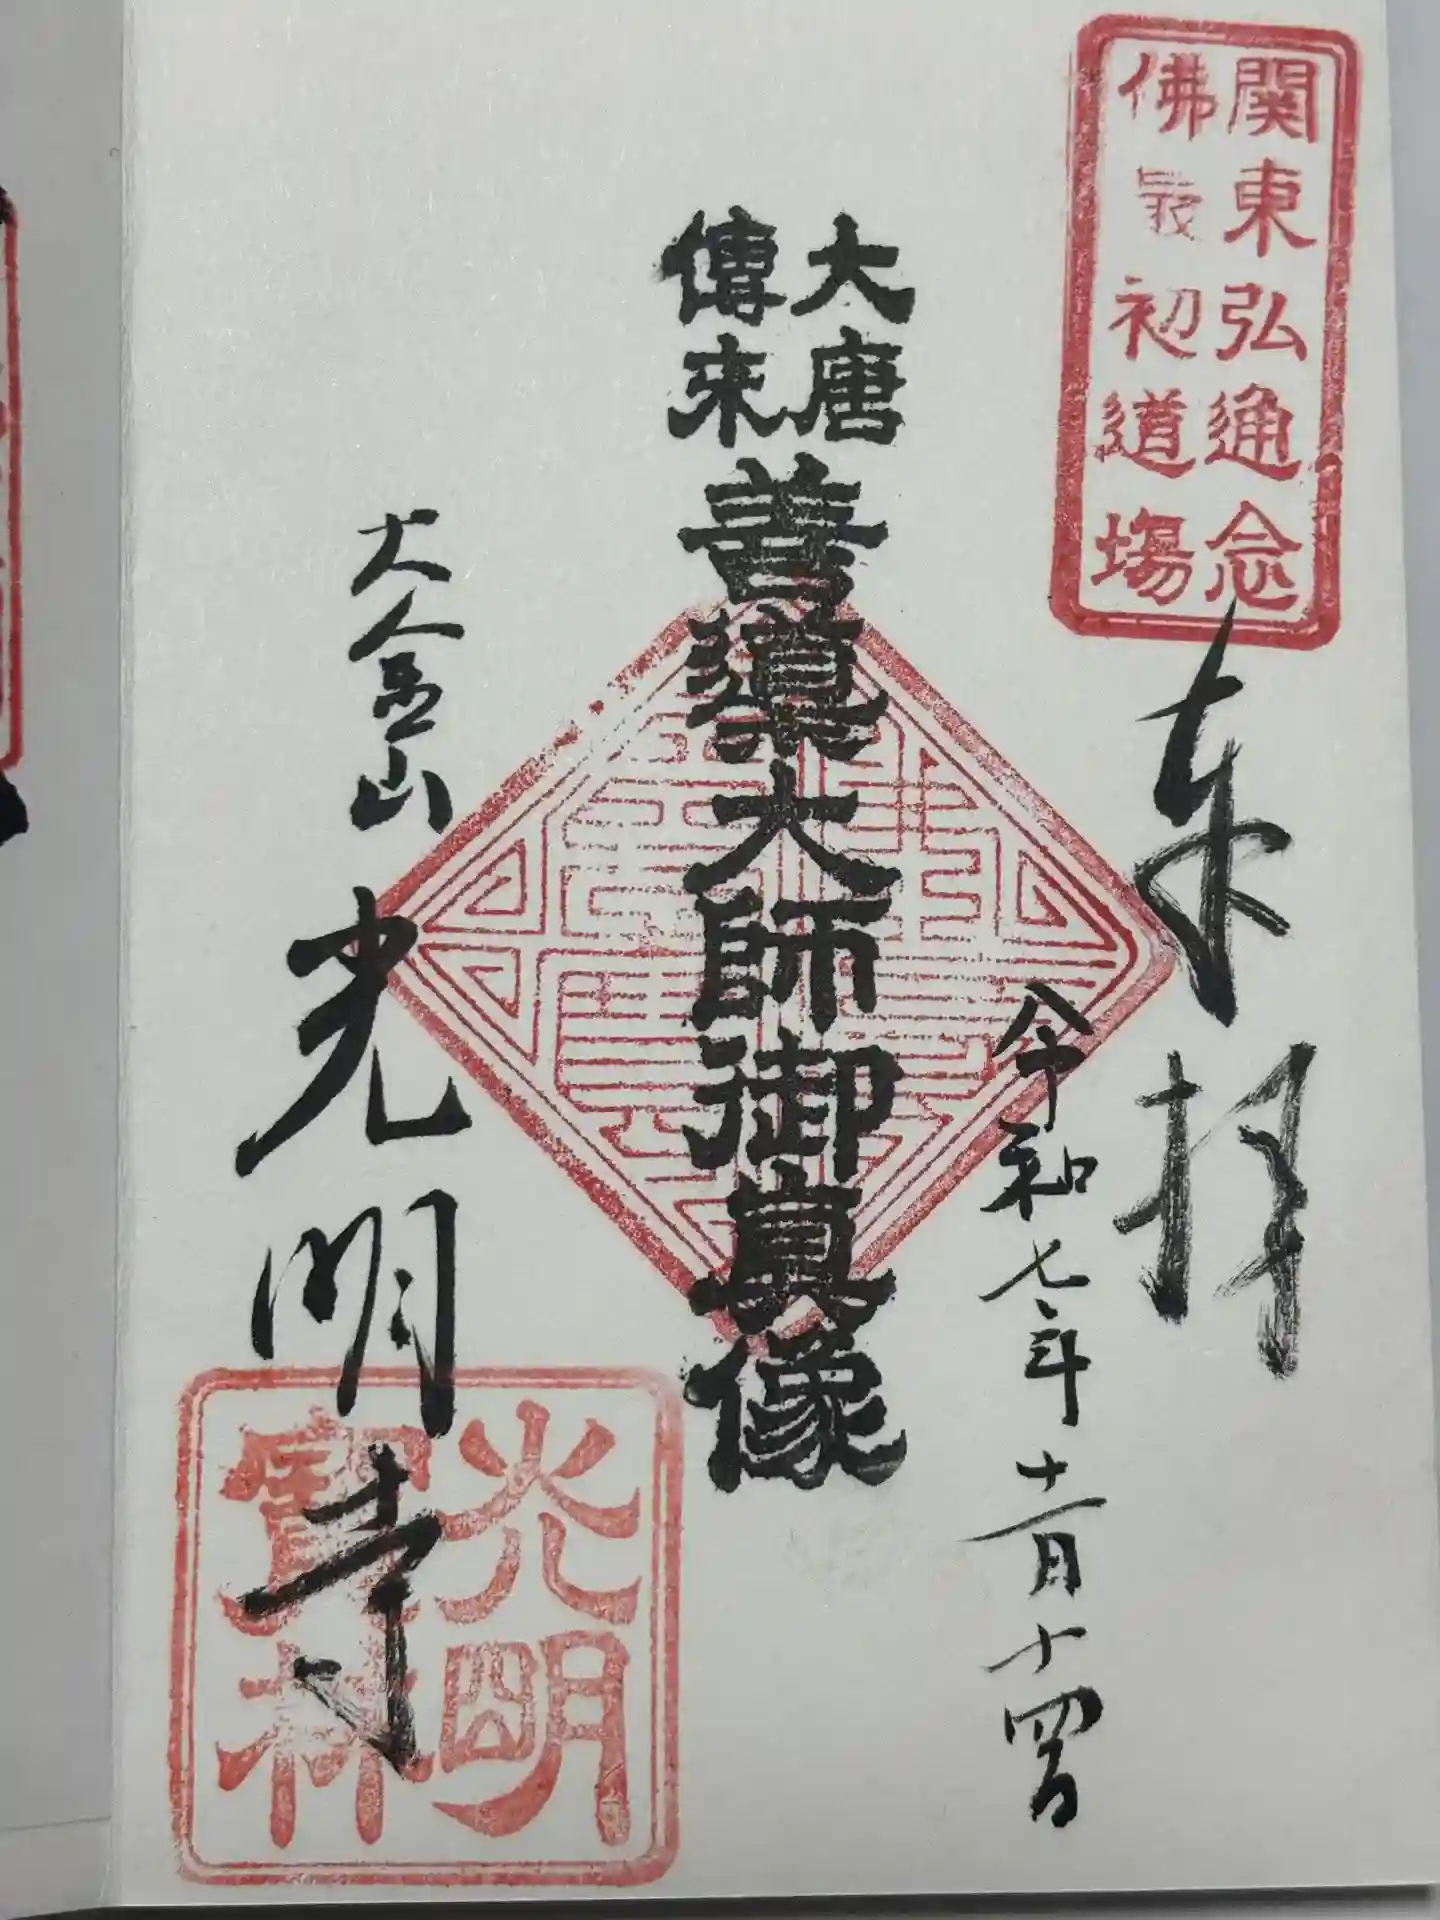 関東弘通念
佛最初道場
奉拝
令和七年十一月十四日
大唐
傳来
善導大師御真像
大金山
光明寺
光明
寳林